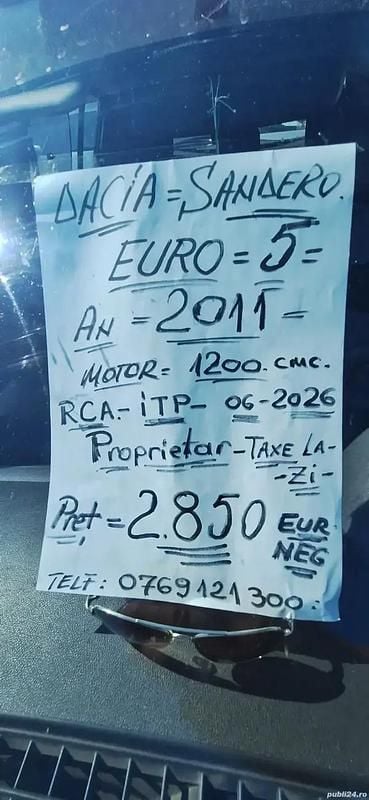 DACIA = SANDERO.
EURO = 5 =
AN = 2011 -
MOTOR = 1200. cmc.
RCA - iTP - 06 - 2026
Proprietar - TAXE LA -
- Zi -
Preț = 2.850 EUR.
NEG
TELF: 0769121300.
publi24.ro